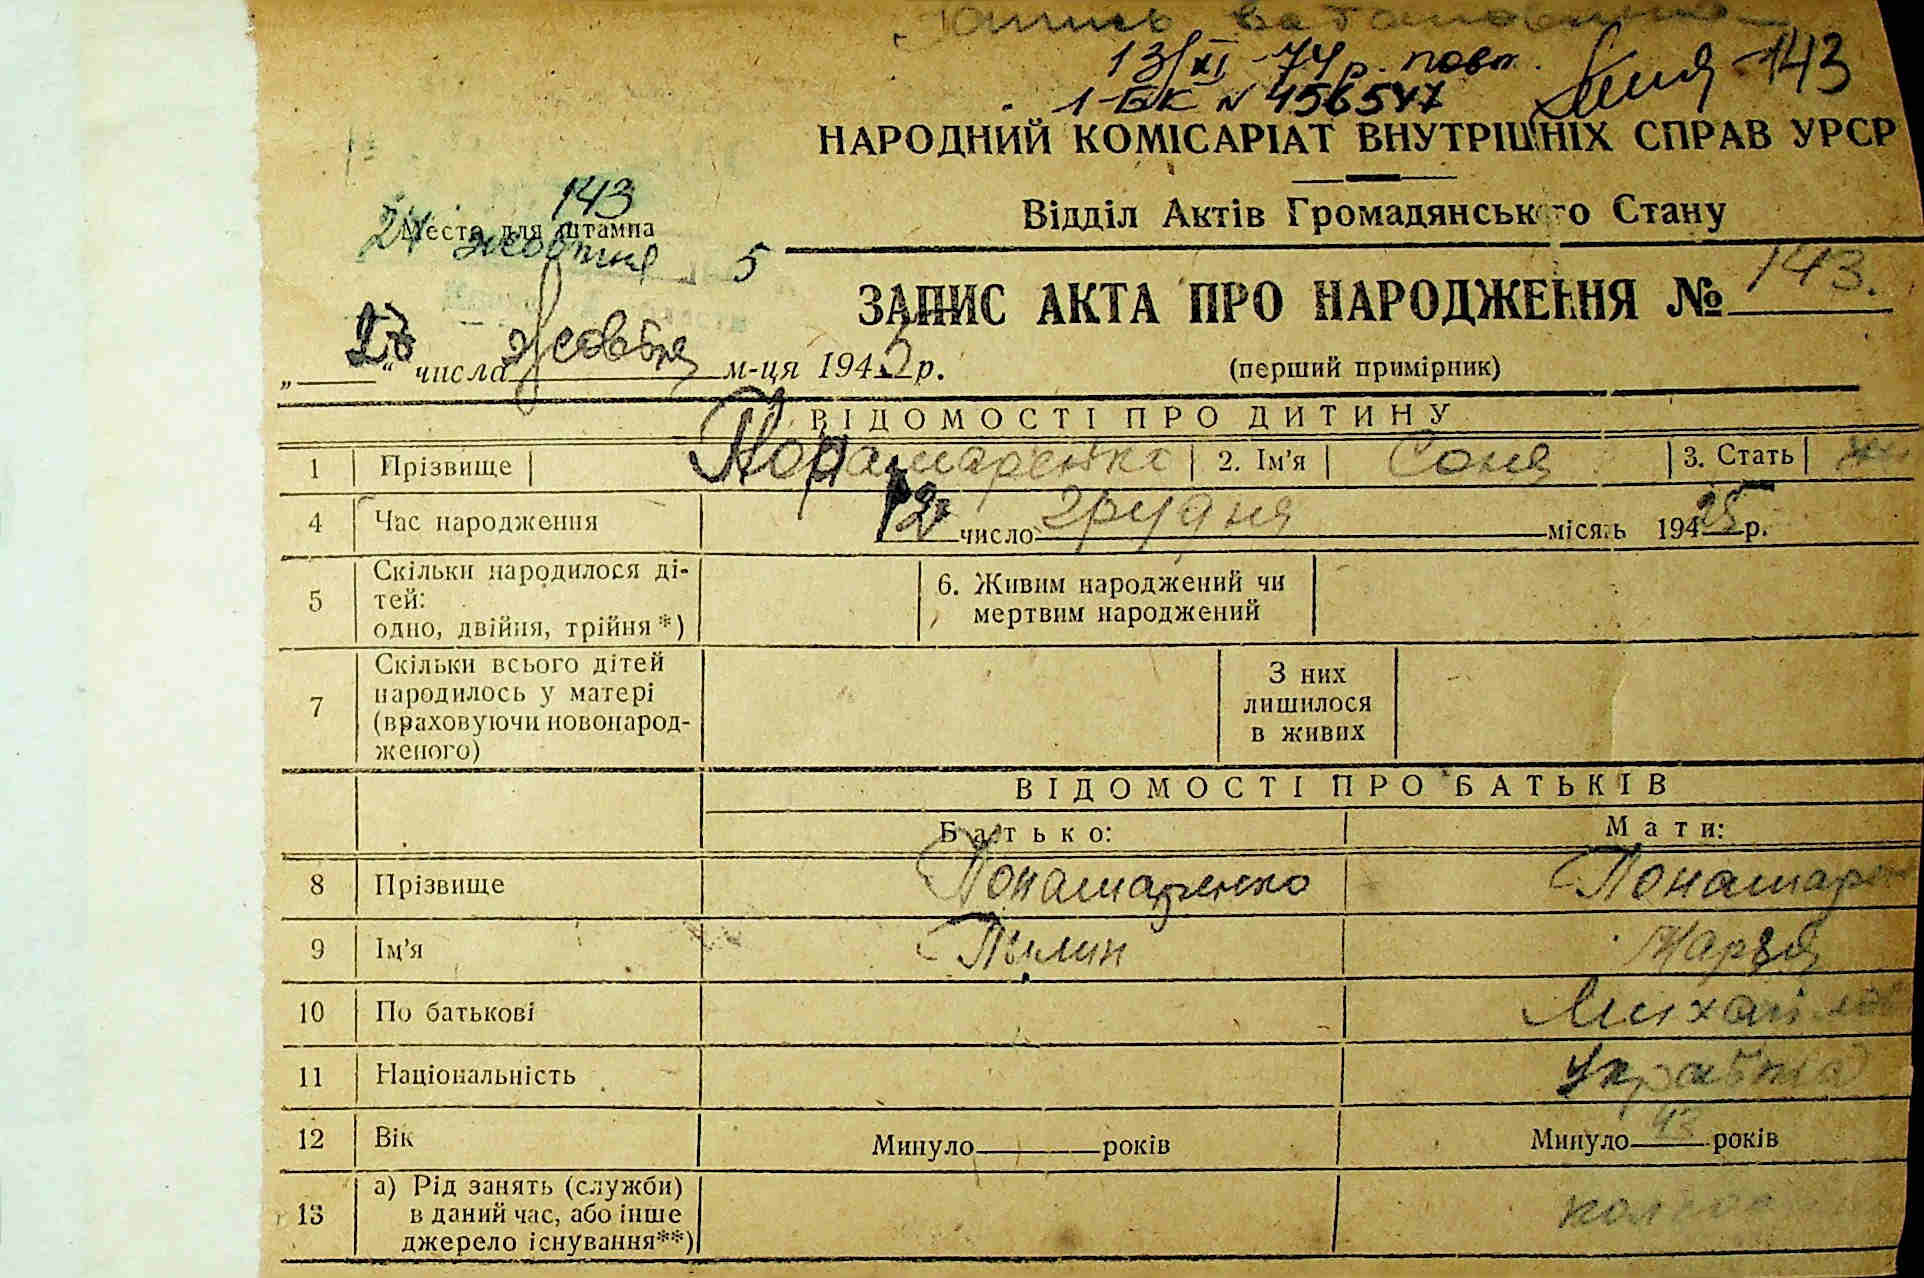 13/XI-74 р. повт.
1-БК № 456547
143
НАРОДНИЙ КОМІСАРІАТ ВНУТРІШНІХ СПРАВ УРСР
Відділ Актів Громадянського Стану
143
Место для штампа
24 жовтня 5
ЗАПИС АКТА ПРО НАРОДЖЕННЯ № 143.
„ “ числа жовтня м-ця 1945 р.
(перший примірник)
ВІДОМОСТІ ПРО ДИТИНУ
1 Прізвище Понамаренко 2. Ім'я Соня 3. Стать ж
4 Час народження 12 число грудня місяць 194 25 р.
5 Скільки народилося ді-
тей:
одно, двійня, трійня*)
6. Живим народжений чи
мертвим народжений
7 Скільки всього дітей
народилось у матері
(враховуючи новонарод-
женого)
З них
лишилося
в живих
ВІДОМОСТІ ПРО БАТЬКІВ
Батько: Мати:
8 Прізвище Понамаренко Понамарен
9 Ім'я Пилип Марія
10 По батькові Михайлів
11 Національність Українка
12 Вік Минуло років Минуло 43 років
13 а) Рід занять (служби)
в даний час, або інше
джерело існування**)